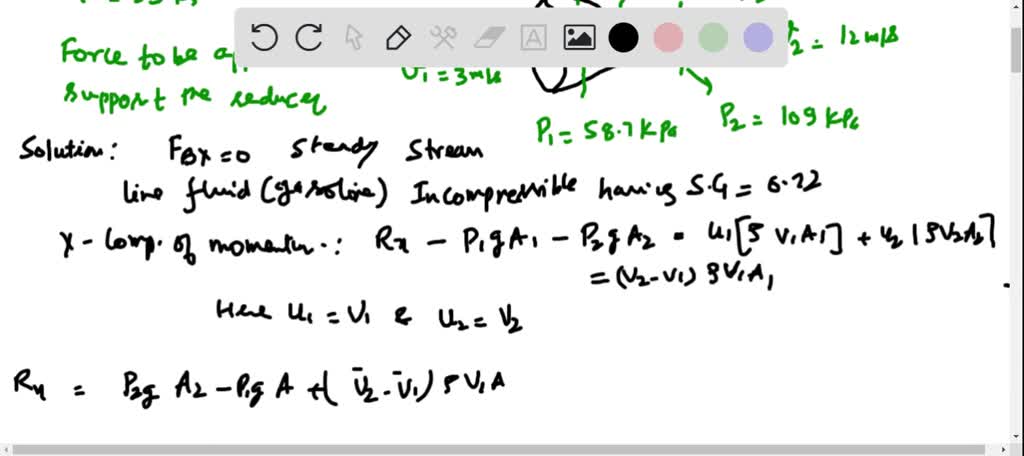 Force to be
V1 = 3m/s
V2 = 12m/s
support the reducer
P1 = 58.7 KPa
P2 = 109 KPa
Solution: FBx = 0 Steady Stream
line fluid (gasoline) Incompressible having S.G = 0.72
X - Comp. of momentum.: Rx - P1g A1 - P2g A2 = u1[ρ V1A1] + u2 |ρV2A2|
= (V2-V1) ρV1A1
Here u1 = V1 & u2 = V2
Rx = P2g A2 - P1g A + ( V̄2 - V̄1) ρ V1A